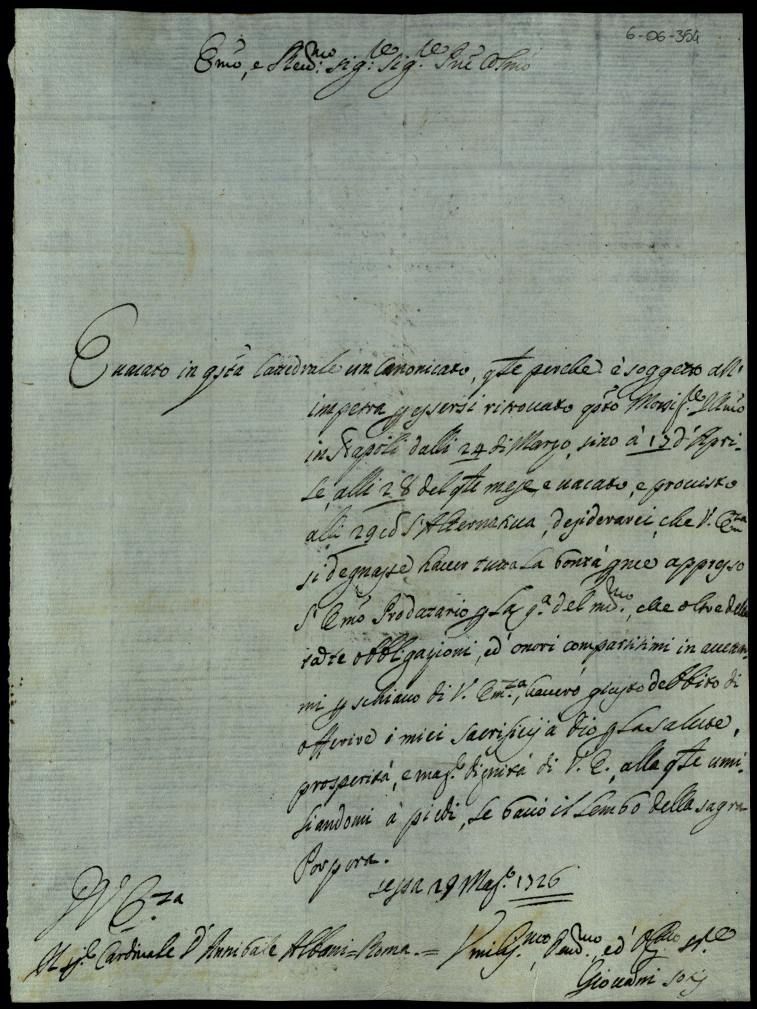 6-06-354
Emo, e Revmo: Sigr: Sigr: Pne Colmo
E vacato in qsta Cattedrale un Canonicato, qle perche è soggetto all'
impetra p essersi ritrovato qsto Monsige Illmo
in Napoli dalli 24 di Marzo, sino à 17 d'Apri-
le, alli 28 del qle mese, è vacato, e provisto
alli 29 cō l'Alternativa, desiderarei, che V. Emza
si degnasse haver tutta la bontà pme appresso
l'Emo Prodatario p la ga del mdmo, che oltre delle
tāte obbligazioni, ed' onori compartitimi in avermi
mi p schiavo di V. Emza, haverò giusto debbito di
offerire i miei sacrificij à Dio p la salute,
prosperità, e magr: dignità di V. E., alla qle umi-
liandomi à piedi, le bacio il lembo della sagra
Porpora.
Sessa 29 Magr: 1726
V. Emza
Sigr Cardinale D. Annibale Albani = Roma. =
Umilismo, Devmo, ed' Obblo Sre
Giovanni